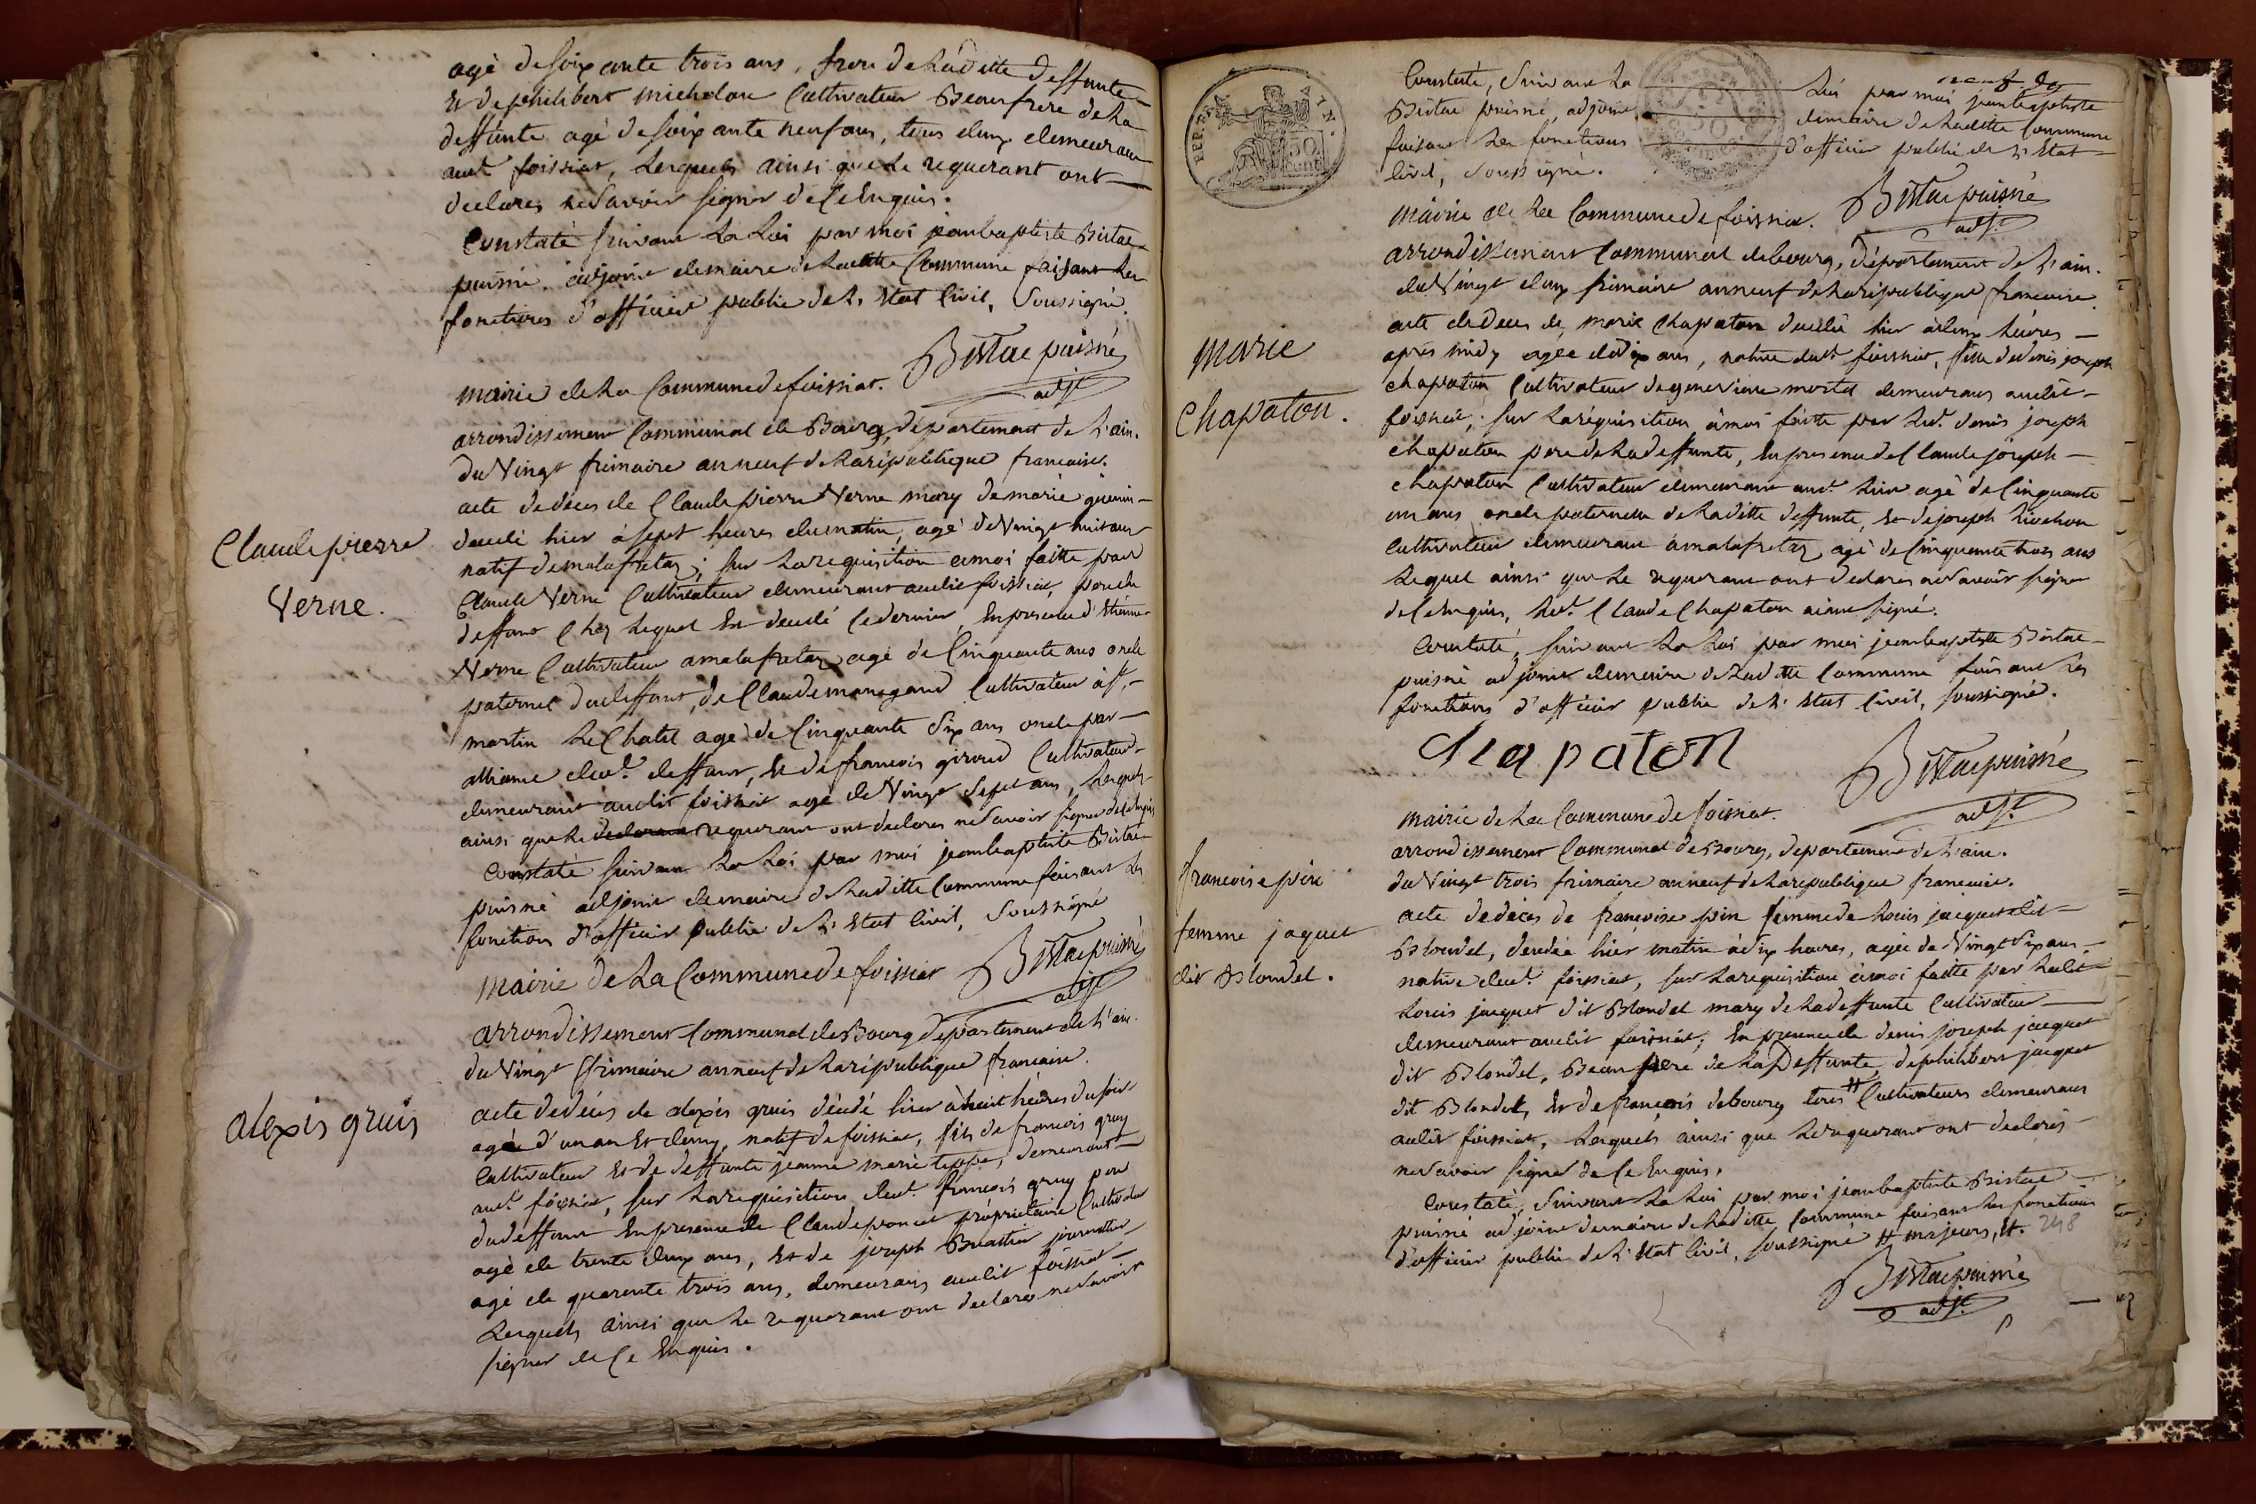 agé de soixante trois ans, frere de La ditte deffunte
Et de philibert michelon Cultivateur Beaufrere de La
deffunte agé de soixante neuf ans, tous deux demeurant
aud.t foissiat, Lesquels ainsi que Le requerant ont
declarés ne Savoir signer de Ce Enquis.
Constaté suivant La Loi par moi jean baptiste Bistac
puisné adjoint du maire de Laditte Commune faisant Les
fonctions d'officier public de L'Etat Civil, Soussigné.
Bistac puisné
adjt
mairie de La Commune de foissiat.
arrondissement Communal de Bourg, département de L'ain.
du Vingt frimaire an neuf de La république francaise.
Claude pierre
Verne.
acte de décès de Claude pierre Verne mary de marie guenin
decedé hier à sept heures du matin, agé de Vingt huit ans
natif de malafretaz; sur La requisition a moi faitte par
Claude Verne Cultivateur demeurant audit foissiat, pere du
deffunt Chez Lequel Est decedé Ce dernier, En presence d'Etienne
Verne Cultivateur a malafretaz agé de Cinquante ans oncle
paternel du deffunt, de Claude manegand Cultivateur à st.
martin Le Chatel agé de Cinquante Six ans oncle par
alliance dud.t deffunt, Et de francois giroud Cultivateur
demeurant audit foissiat agé de Vingt Sept ans, Lesquels
ainsi que Le requerant ont declarés ne Savoir signer de Ce Enquis
Constaté suivant La Loi par moi jean baptiste Bistac
puisné adjoint du maire de Laditte Commune faisant Les
fonctions d'officier public de L'Etat Civil, Soussigné
Bistac puisné
adjt
Mairie de La Commune de foissiat
arrondissement Communal de Bourg département de L'ain.
du Vingt frimaire an neuf de La république francaise.
alexis gruis
acte de décès de alexis gruis décédé hier à huit heures du soir
agé d'un an Et demy, natif de foissiat, fils de francois gruy
Cultivateur Et de deffunte jeanne marie teppe, demeurant
aud.t foissiat, sur La requisition dud.t francois gruy pere
du deffunt En presence de Claude poncet propriétaire Cultivateur
agé de trente deux ans, Et de joseph Buattier journallier
agé de quarente trois ans, demeurans audit foissiat
Lesquels ainsi que Le requerant ont declarés ne Savoir
signer de Ce Enquis.
REP. FRA
50
Cent
neuf
Constaté, Suivant La Loi par moi jean baptiste
Bistac puisné, adjoint du maire de Laditte Commune
faisant Les fonctions d'officier public de L'Etat
Civil, Soussigné.
Bistac puisné
adjt.
Mairie de La Commune de foissiat.
arrondissement Communal de bourg, département de L'ain.
du Vingt deux frimaire an neuf de La république francaise
Marie
Chapaton.
acte de deces de marie Chapaton decedée hier à deux heures
aprés midy agée de dix ans, native dudt foissiat, fille de denis joseph
chapaton Cultivateur de genevieve mortel demeurans audit
foissiat; sur La réquisition à moi faitte par Led.t denis joseph
chapaton pere de La deffunte, En presence de Claude joseph
chapaton Cultivateur demeurant aud.t Lieu agé de Cinquante
un ans oncle paternelle de La ditte deffunte, Et de joseph Livehon
Cultivateur demeurant a malafretaz, agé de Cinquante trois ans
Lequel ainsi que Le requerant ont declarés ne Savoir signer
de Ce Enquis, Led.t Claude Chapaton a icun signé.
Constaté, suivant La Loi par moi jean baptiste Bistac
puisné adjoint du maire de Laditte Commune faisant Les
fonctions d'officier public de L'Etat Civil, Soussigné.
Chapaton
Bistac puisné
adjt.
Mairie de La Commune de foissiat.
arrondissement Communal de Bourg, departement de L'ain.
du Vingt trois frimaire an neuf de La république francaise.
francoise pin
femme jaquet
dit Blondel.
acte de décés de francoise pin femme de Louis jacquet dit
Blondel, decedée hier matin à dix heures, agée de Vingt Six ans
native dud.t foissiat, sur La requisition à moi faitte par Ledit
Louis jacquet dit Blondel mary de La deffunte Cultivateur
demeurant audit foissiat; En presence de denis joseph jacquet
dit Blondel, Beau frere de La Deffunte, de philibert jacquet
dit Blondel, Et de francois debourg tous # Cultivateurs demeurans
audit foissiat, Lesquels ainsi que Le requerant ont declarés
ne Savoir signer de Ce Enquis.
Constaté, Suivant La Loi par moi jean baptiste Bistac
puisné adjoint du maire de Laditte Commune faisant Les fonctions
d'officier public de L'Etat Civil, soussigné # majeurs, #. 248
Bistac puisné
adjt.